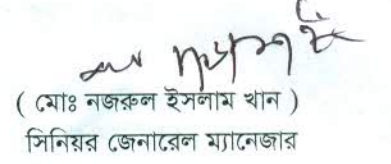 ( মোঃ নজরুল ইসলাম খান )
সিনিয়র জেনারেল ম্যানেজার